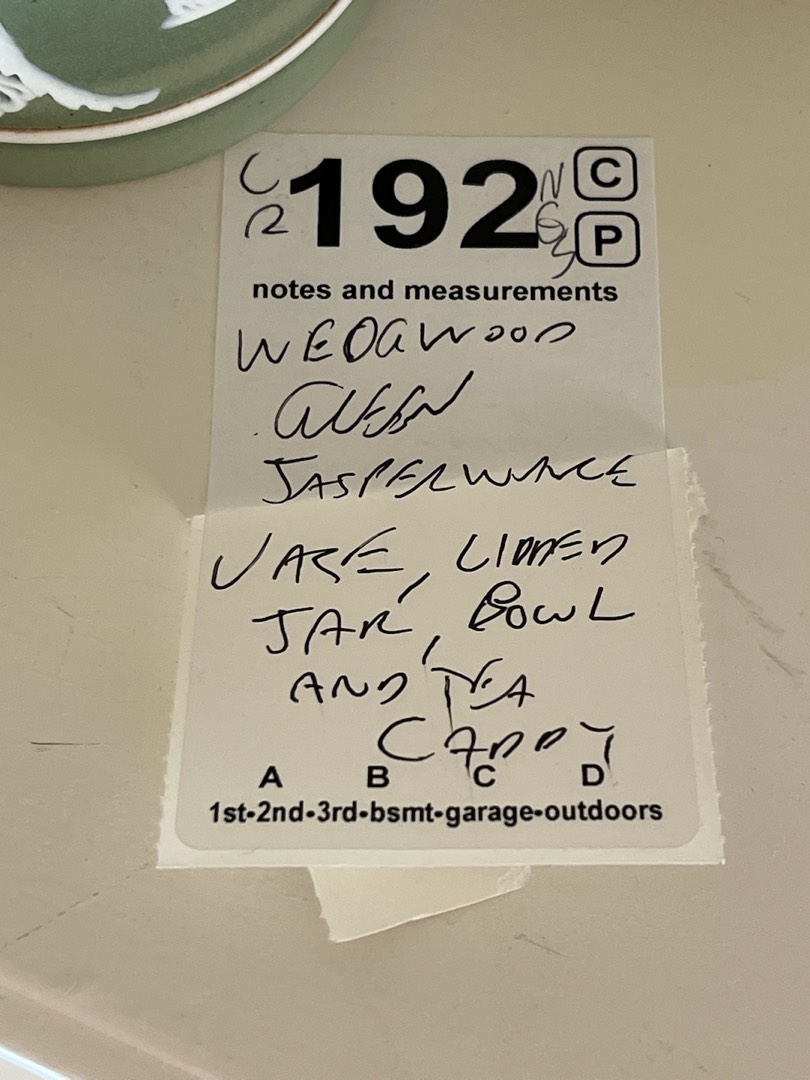 C 192 N C
R G P
notes and measurements
WEDGWOOD
GREEN
JASPERWARE
VASE, LIDDED
JAR, BOWL
AND TEA
CADDY
A B C D
1st-2nd-3rd-bsmt-garage-outdoors